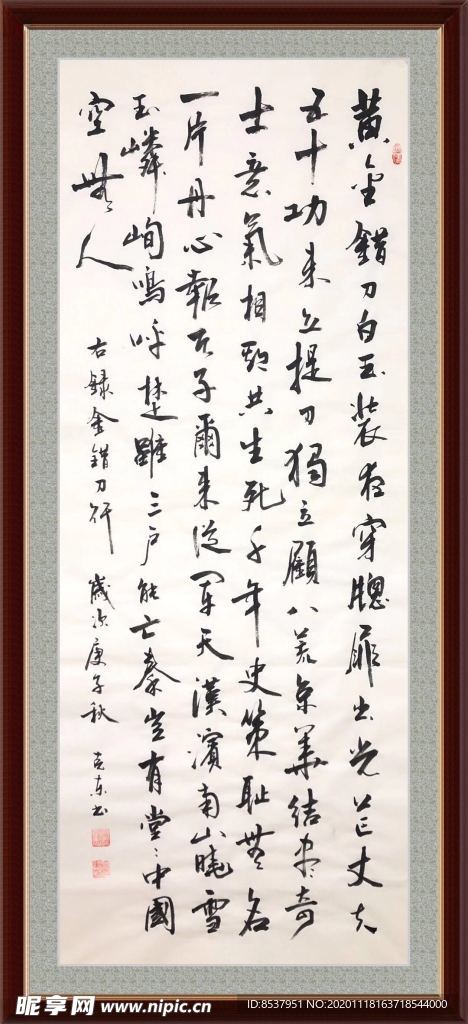 黄金錯刀白玉装夜穿牕扉出光芒丈夫
五十功未立提刀獨立顧八荒京華結尽奇
士意氣相期共生死千年史策耻無名
一片丹心報天子爾来從軍天漢濱南山曉雪
玉嶙峋嗚呼楚雖三户能亡秦豈有堂〻中國
空無人
右録金錯刀行 歲次庚子秋 克东书
昵享网 www.nipic.cn
ID:8537951 NO:20201118163718544000